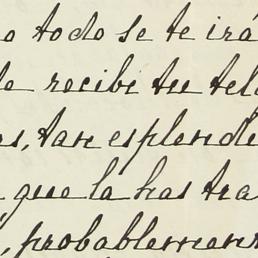 o todo se te irá
le recibi tu tel
os, tan esplende
, que la has tra
, probablemen